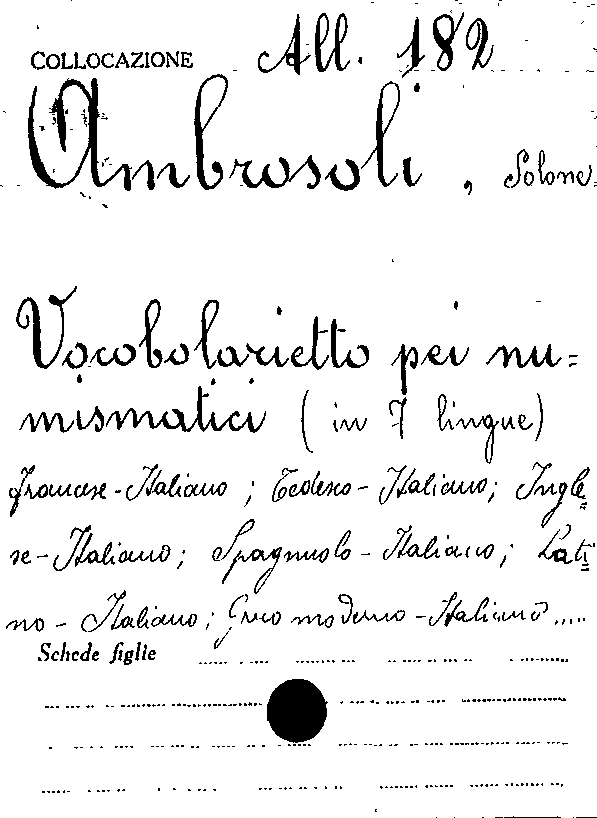 COLLOCAZIONE All. 182
Ambrosoli, Solone
Vocobolarietto pei nu=
mismatici (in 7 lingue)
Francese-Italiano; Tedesco-Italiano; Ingle=
se-Italiano; Spagnuolo-Italiano; Lati=
no-Italiano; Greco moderno-Italiano.....
Schede figlie